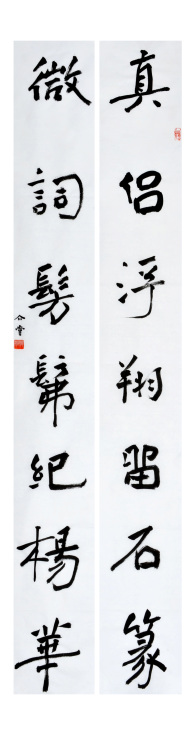 真侣浮翔留石篆
微詞髣髴紀楊華